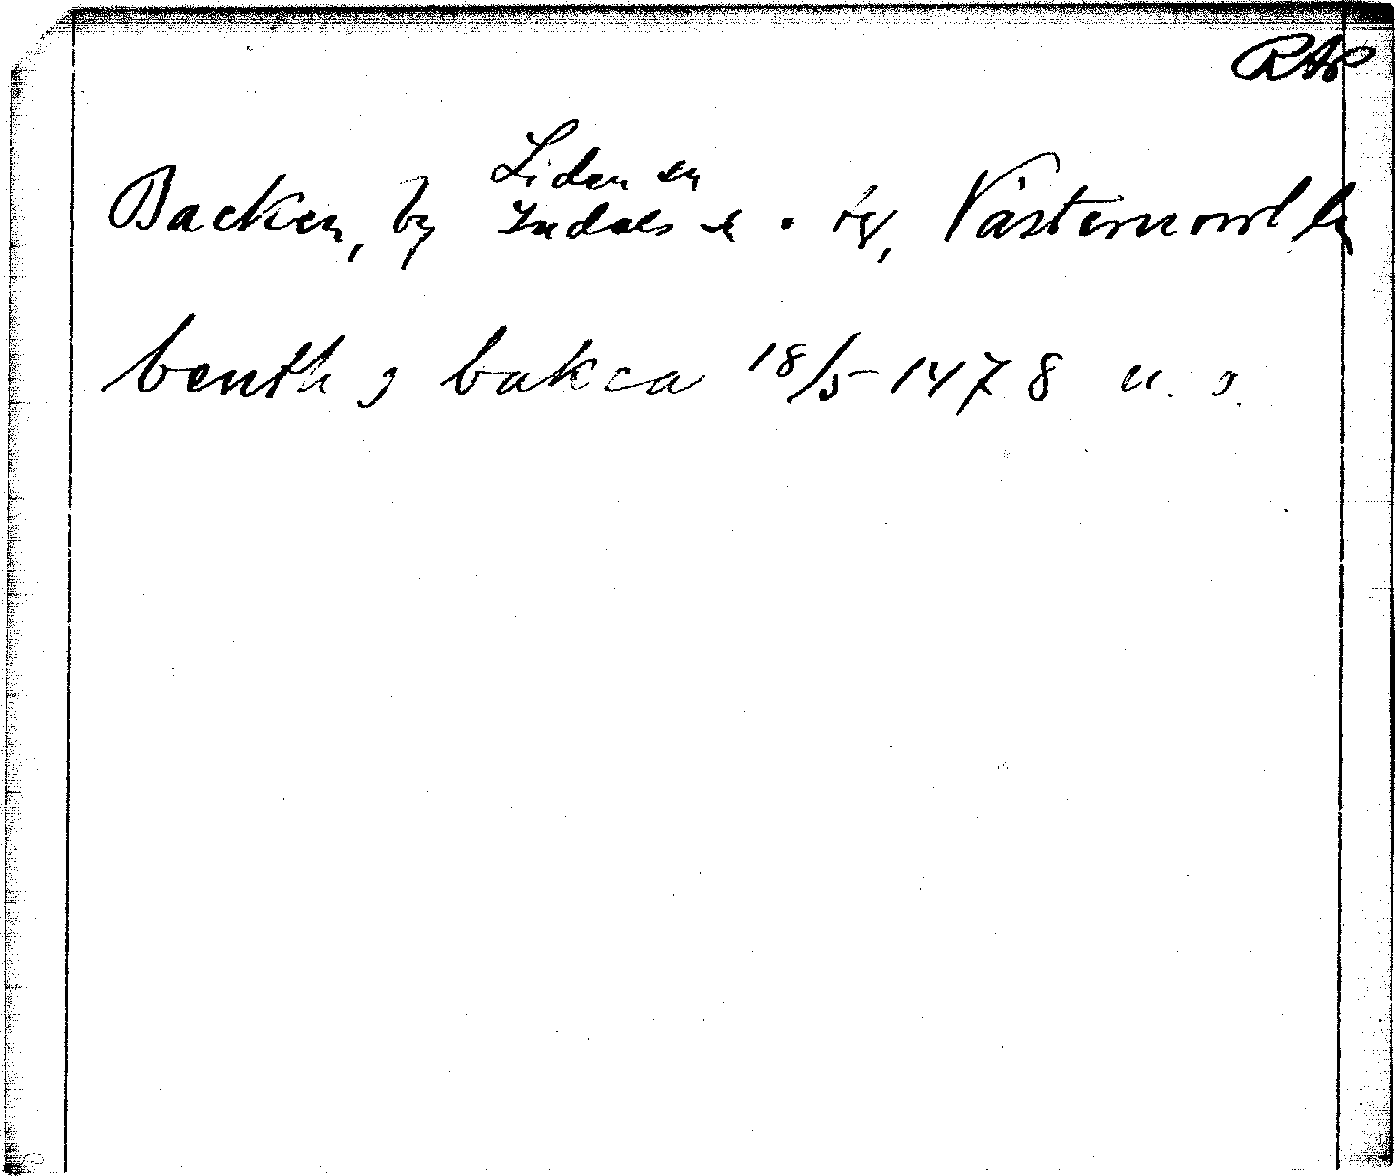 RAP
Liden sn
Backen, by Indals sn. tg, Västernorrl ln
benth j bakca 18/5-1478 u. s.